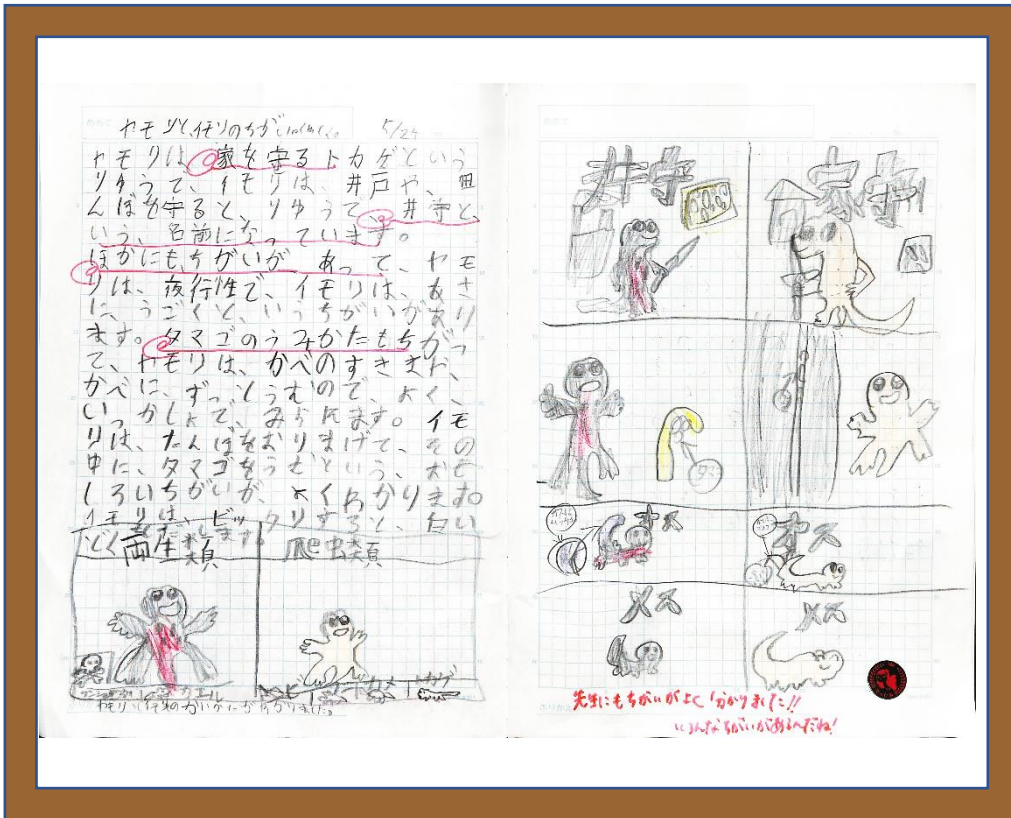 ヤモリと、イモリのちがい 5/24
ヤモリは、家を守るトカゲという
りゆうで、イモリは、井戸や、田
んぼを守ると、りゆうで、井守と、
いう、名前になっています。
ほかにもちがいが あって、ヤモ
リは、夜行性で、イモリは、あさ
に、うごくと、いっちがいがあり
ます。タマゴのうみかたもちがっ
て、ヤモリは、かべのすきまや、
かべに、ずっしうむので、よく、
いっかしょで、みられます。イモ
リは、たんぼをおりまげて、その
中に、タマゴをうむという、おも
しろいちがいが、よくわかります。
イモリは、ビックリすると、
どく
両生類
爬虫類
カエル
カメ トカゲ
井守
家守
オス
オス
メス
メス
先生にもちがいがよく分かりました!!
いろんなちがいがあるんだね!